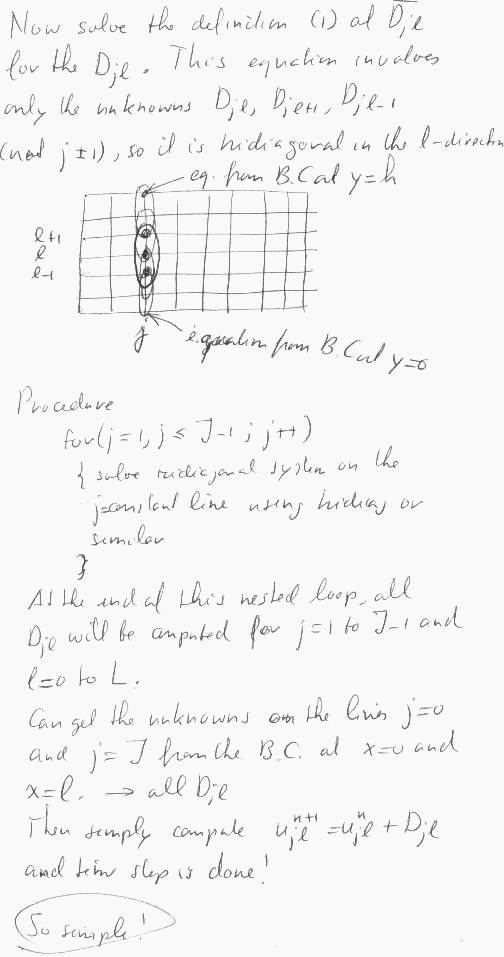 Now solve the definition (1) of D̅jℓ
for the Djℓ. This equation involves
only the unknowns Djℓ, Djℓ+1, Djℓ-1
(not j±1), so it is tridiagonal in the ℓ-direction
eq. from B.C at y=h
ℓ+1
ℓ
ℓ-1
j
equation from B.C at y=0
Procedure
for(j=1, j ≤ J-1; j++)
{ solve tridiagonal system on the
j=constant line using tridiag or
similar
}
At the end of this nested loop, all
Djℓ will be computed for j=1 to J-1 and
ℓ=0 to L.
Can get the unknowns on the lines j=0
and j=J from the B.C. at x=0 and
x=ℓ. → all Djℓ
Then simply compute u^{n+1}_{jℓ} = u^n_{jℓ} + Djℓ
and time step is done!
So simple!